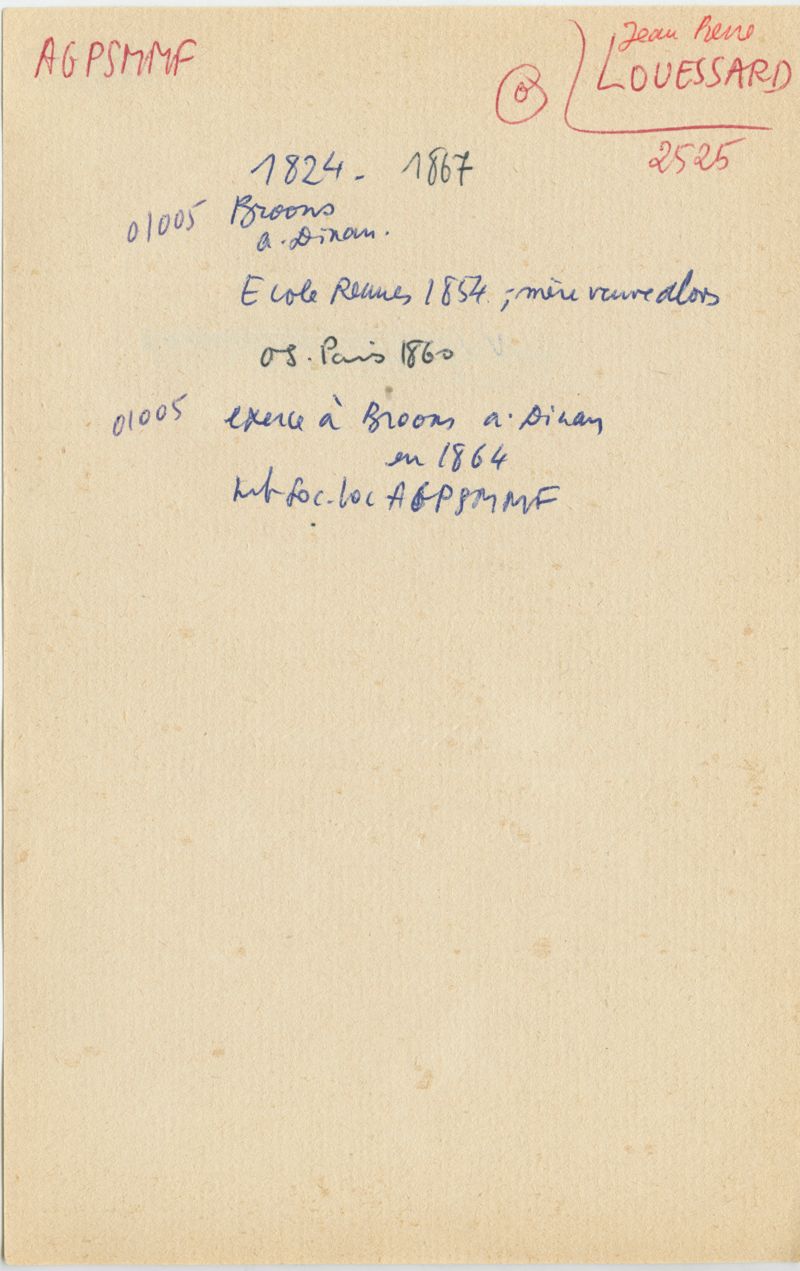 AGPSMMF
Jean Pierre
LOUESSARD
OS
2525
1824 - 1867
01005 Broons
a. Dinan.
Ecole Rennes 1854 ; mère veuve alors
OS. Paris 1860
01005 exerce à Broons a. Dinan
en 1864
Mb Soc. loc AGPSMMF